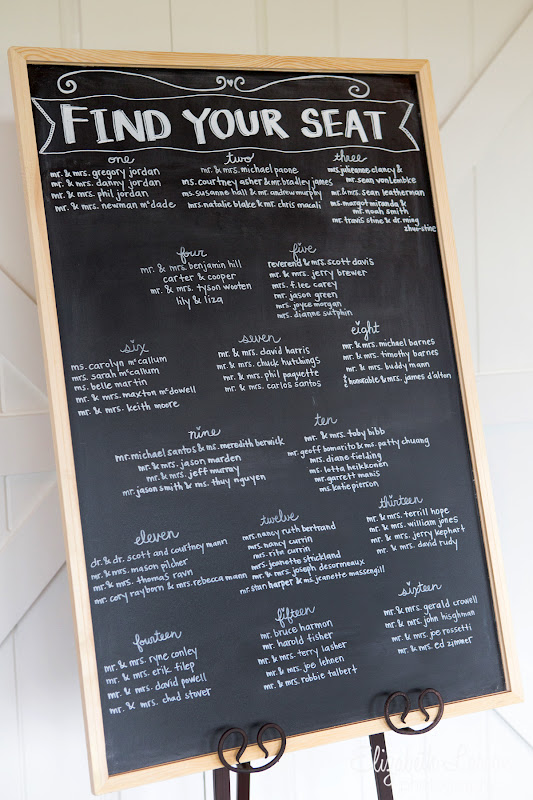 FIND YOUR SEAT
one
mr. & mrs. gregory jordan
mr. & mrs. danny jordan
mr. & mrs. phil jordan
mr. & mrs. newman mcdade
two
mr. & mrs. michael paone
ms. courtney asher & mr. bradley james
ms. susanne hall & mr. andrew murphy
mrs. natalie blake & mr. chris macali
three
mrs. julieanne clancy &
mr. sean vonlembke
mr. & mrs. sean leatherman
ms. margot miranda &
mr. noah smith
mr. travis stine & dr. ming
zhui-stine
four
mr. & mrs. benjamin hill
carter & cooper
mr. & mrs. tyson wooten
lily & liza
five
reverend & mrs. scott davis
mr. & mrs. jerry brewer
mrs. f. lee carey
mr. jason green
mrs. joyce morgan
mrs. dianne sutphin
six
ms. carolyn mccallum
mrs. sarah mccallum
ms. belle martin
mr. & mrs. maxton mcdowell
mr. & mrs. keith moore
seven
mr. & mrs. david harris
mr. & mrs. chuck hutchings
mr. & mrs. phil paquette
mr. & mrs. carlos santos
eight
mr. & mrs. michael barnes
mr. & mrs. timothy barnes
mr. & mrs. buddy mann
the honorable & mrs. james d'alton
nine
mr. michael santos & ms. meredith berwick
mr. & mrs. jason marden
mr. & mrs. jeff murray
mr. jason smith & ms. thuy nguyen
ten
mr. & mrs. toby bibb
mr. geoff bomarito & ms. patty chuang
mrs. diane fielding
ms. lotta heikkonen
mr. garrett manis
ms. katie pierson
eleven
dr. & dr. scott and courtney mann
mr. & mrs. mason pilcher
mr. & mrs. thomas ravn
mr. cory rayborn & mrs. rebecca mann
twelve
mrs. nancy ruth bertrand
mrs. nancy currin
mrs. rita currin
mrs. jeanette strickland
mr. & mrs. joseph desormeaux
mr. stan harper & ms. jeanette massengill
thirteen
mr. & mrs. terrill hope
mr. & mrs. william jones
mr. & mrs. jerry kephart
mr. & mrs. david rudy
fourteen
mr. & mrs. ryne conley
mr. & mrs. erik filep
mr. & mrs. david powell
mr. & mrs. chad stover
fifteen
mr. bruce harmon
mr. harold fisher
mr. & mrs. terry lasher
mr. & mrs. joe lehnen
mr. & mrs. robbie talbert
sixteen
mr. & mrs. gerald crowell
mr. & mrs. john hisghman
mr. & mrs. joe rossetti
mr. & mrs. ed zimmer
Elizabeth